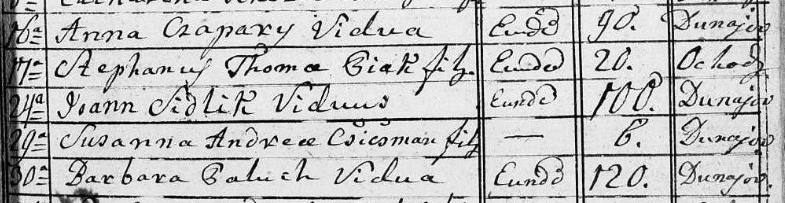 16ª Anna Czapary Vidua Eundẽ 90. Dunajov
17ª Stephanus Thomæ Ciak filz. Eundẽ 20. Ochodz
24ª Joann Sidlik Viduus Eundẽ 100. Dunajov
29ª Susanna Andreæ Csicsman filz — 6. Dunajov
30ª Barbara Paluch Vidua Eundẽ 120. Dunajov.